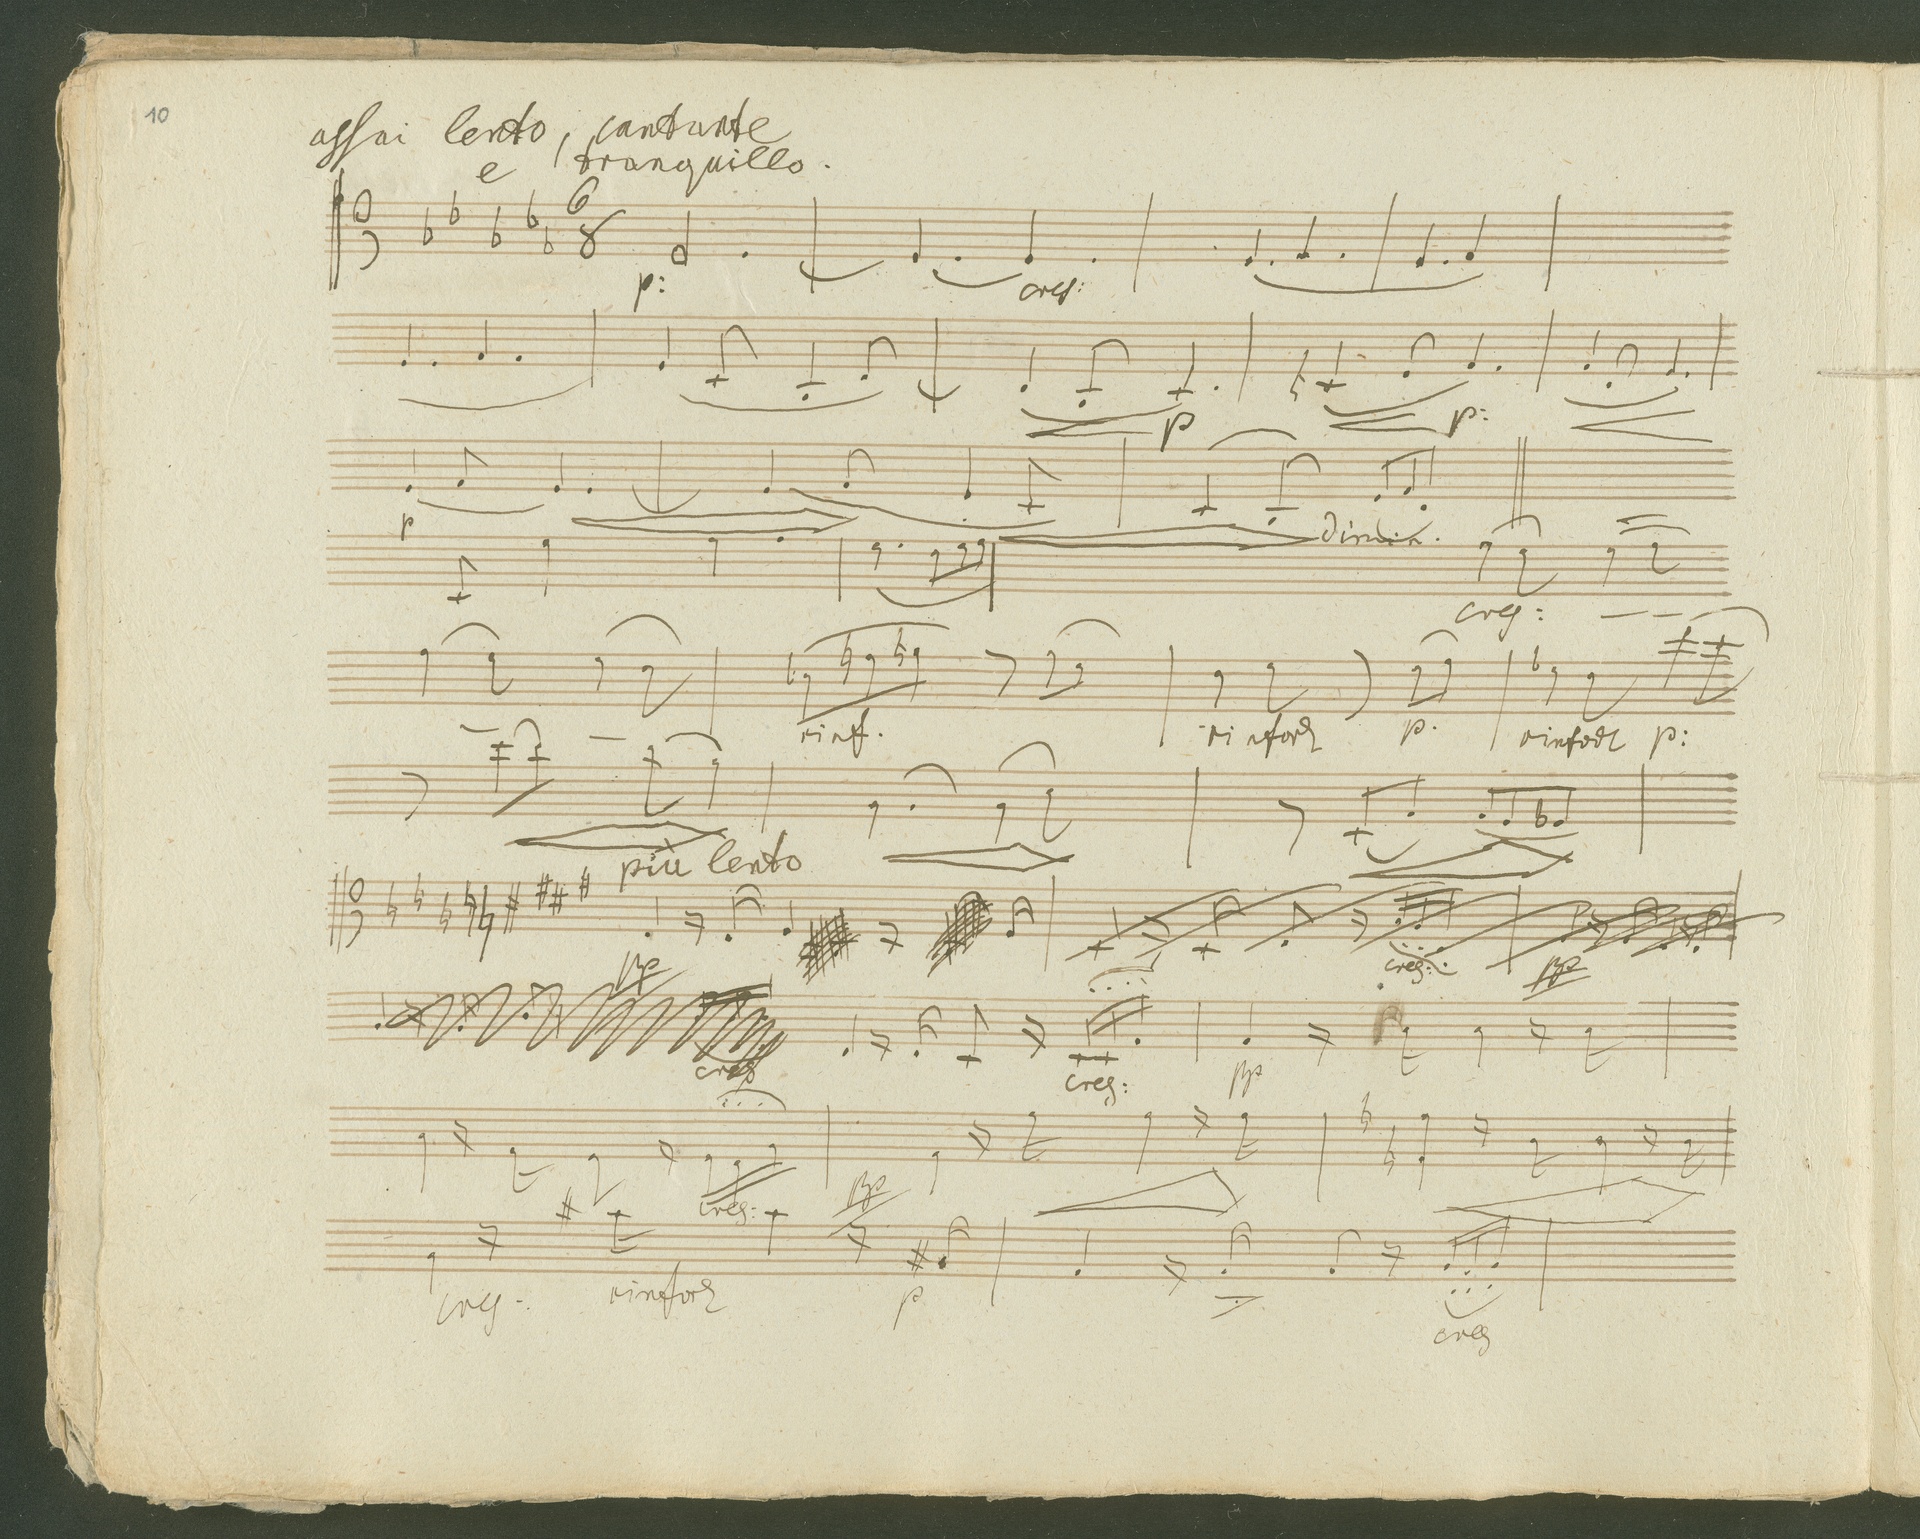 10
assai lento, cantante
e tranquillo.
6
8
p: cres:
p p:
p dimin.
cres:
rinf. rinforz p. rinforz p:
più lento
pp cres: pp
cres cres: pp
cres: pp
cres: rinforz p
cres